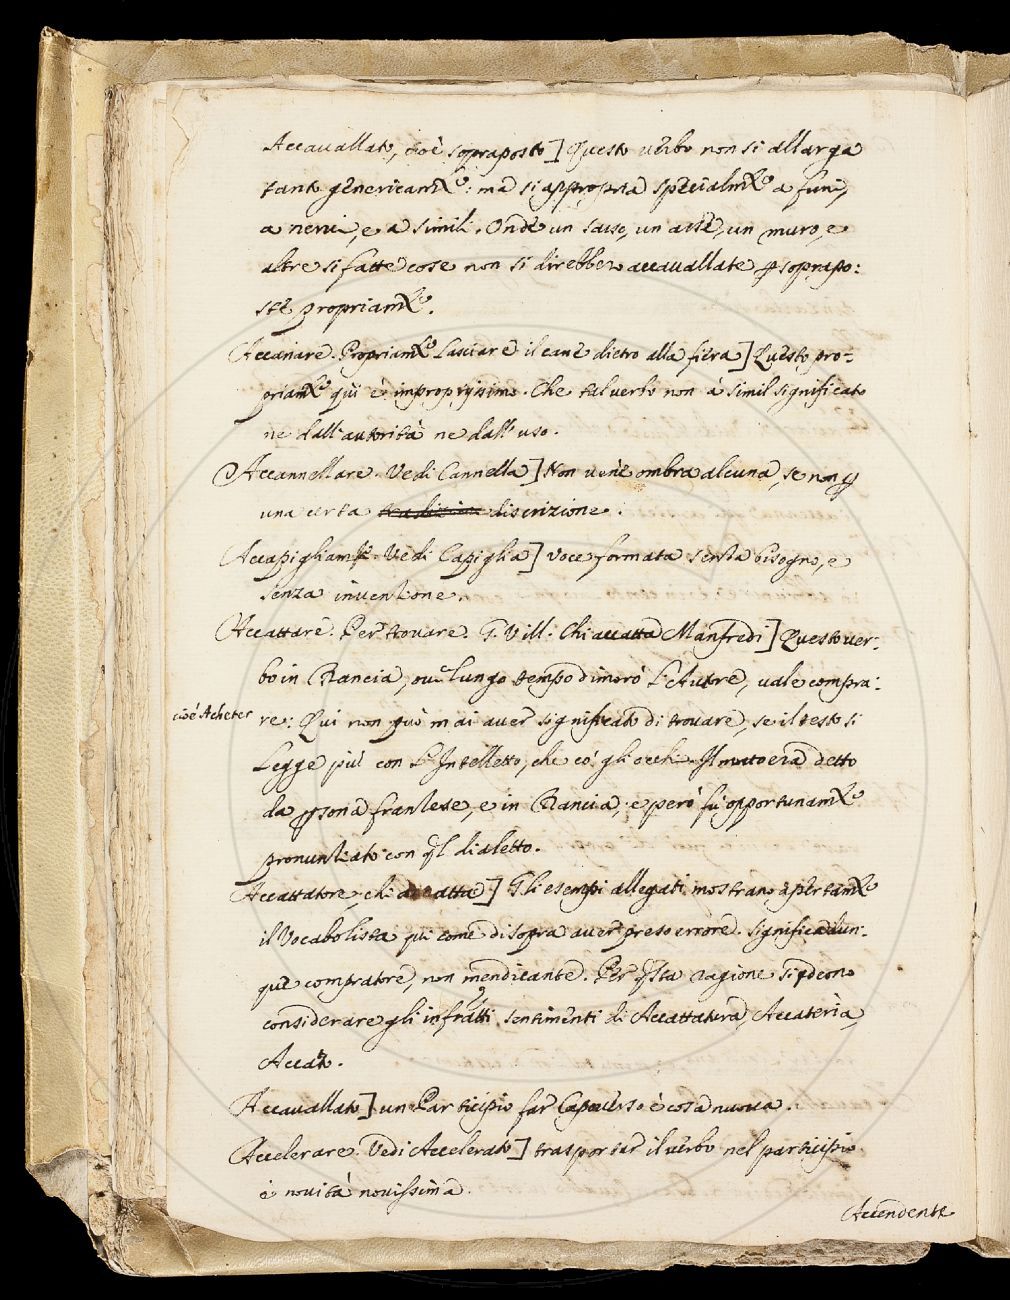 Accavallato, cioè sopraposto] Questo verbo non si allarga
tanto genericam.te: ma si appropria spezialm.te a funi,
a nervi, e a simili. Onde un sasso, un asse, un muro, e
altre sifatte cose non si direbbero accavallate p sopropo:
ste propriam.te.
Accanare. Propriam.te Lasciare il cane dietro alla fiera] Questo pro-
priam.te qui è impropriissimo. Che tal verbo non à simil significato
ne dall'autorità ne dall'uso.
Accannellare. Vedi Cannella] Non v'è ombra alcuna, se non p
una certa discrizione.
Accapigliam.to Vedi Capiglia] voce formata senza bisogno, e
senza invenzione.
Accattare. Per trovare. G. Vill. Chi accatta Manfredi] Questo ver-
bo in Francia, ove lungo tempo dimorò l'Autore, vale compra-
cioè Acheter re: Qui non può mai aver significato di trovare, se il testo si
Legge più con l'Intelletto, che co' gli occhi. Il motto era detto
da psona franzese, e in Francia, e però fu opportunam.te
pronunziato con ql dialetto.
Accattatore, chi accatta] Gli esempi allegati mostrano apertam.te
il Vocabolista qui come di sopra aver preso errore. significa adun-
que compratore, non mendicante. Per qsta ragione si deono
considerare gli infratti sentimenti di Accattatura, Accaterìa,
Accato.
Accavallato] un Participio far Capoverso è cosa nuova.
Accelerare. Vedi Accelerato] trasportar il verbo nel participio
è novità novissima.
Accendente